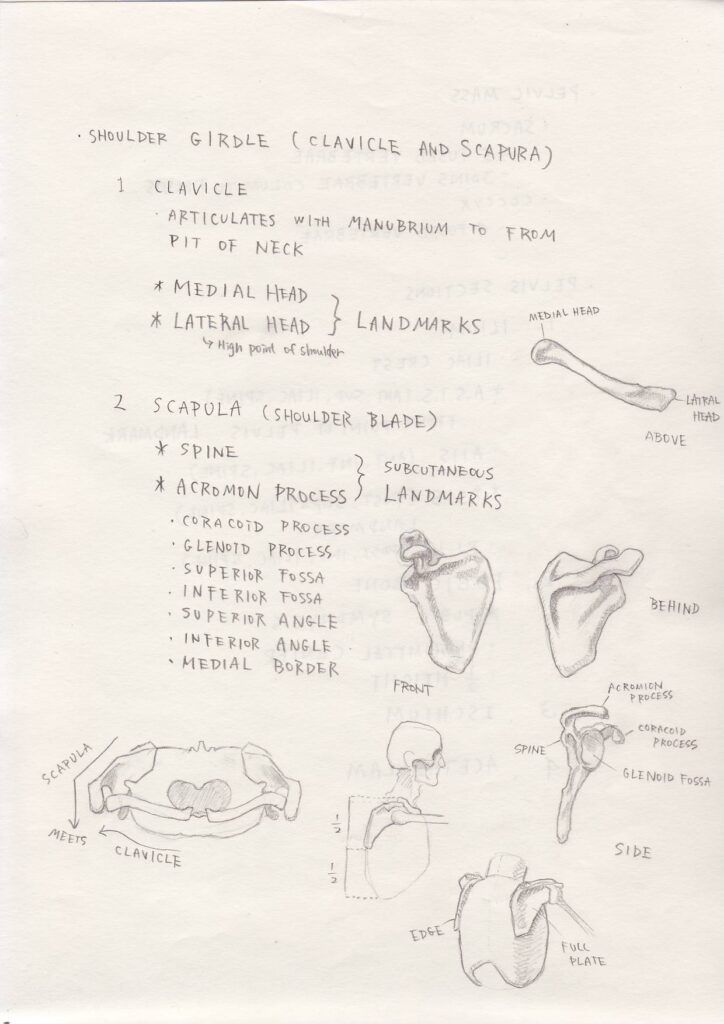 · SHOULDER GIRDLE (CLAVICLE AND SCAPURA)
1 CLAVICLE
· ARTICULATES WITH MANUBRIUM TO FROM
PIT OF NECK
* MEDIAL HEAD
* LATERAL HEAD } LANDMARKS
↳ High point of shoulder
MEDIAL HEAD
LATRAL
HEAD
ABOVE
2 SCAPULA (SHOULDER BLADE)
* SPINE
* ACROMON PROCESS } SUBCUTANEOUS
LANDMARKS
· CORACOID PROCESS
· GLENOID PROCESS
· SUPERIOR FOSSA
· INFERIOR FOSSA
· SUPERIOR ANGLE
· INFERIOR ANGLE
· MEDIAL BORDER
FRONT
BEHIND
ACROMION
PROCESS
CORACOID
PROCESS
SPINE
GLENOID FOSSA
SIDE
SCAPULA
MEETS
CLAVICLE
1/2
1/2
EDGE
FULL
PLATE